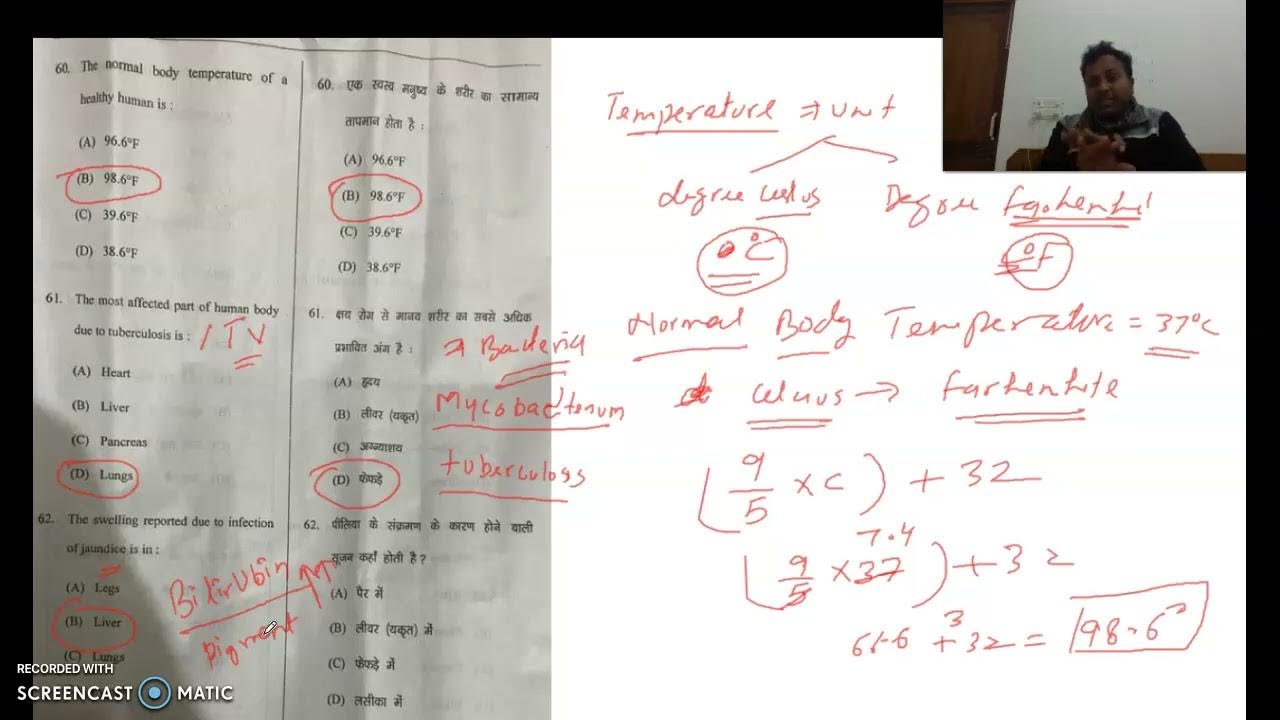 60. The normal body temperature of a
healthy human is :
(A) 96.6°F
(B) 98.6°F
(C) 39.6°F
(D) 38.6°F
61. The most affected part of human body
due to tuberculosis is : / TV
(A) Heart
(B) Liver
(C) Pancreas
(D) Lungs
62. The swelling reported due to infection
of jaundice is in :
(A) Legs
(B) Liver
(C) Lungs
Bilirubin
pigment
60. एक स्वस्थ मनुष्य के शरीर का सामान्य
तापमान होता है :
(A) 96.6°F
(B) 98.6°F
(C) 39.6°F
(D) 38.6°F
61. क्षय रोग से मानव शरीर का सबसे अधिक
प्रभावित अंग है :
(A) हृदय
(B) लीवर (यकृत)
(C) अग्न्याशय
(D) फेफड़े
62. पीलिया के संक्रमण के कारण होने वाली
सूजन कहाँ होती है ?
(A) पैर में
(B) लीवर (यकृत) में
(C) फेफड़े में
(D) लसीका में
→ Bacteria
Mycobacterium
tuberculoss
Temperature ⇒ unit
degree celsus
Degree Farhenhit
°C
°F
Normal Body Temperature = 37°C
Celsius → Farhenhite
(9/5 × C) + 32
7.4
(9/5 × 37) + 32
66.6 + 32 = 98.6°
RECORDED WITH
SCREENCAST MATIC